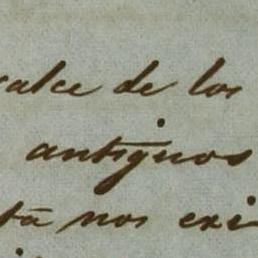 calce de los
antiguos
tá nos exi